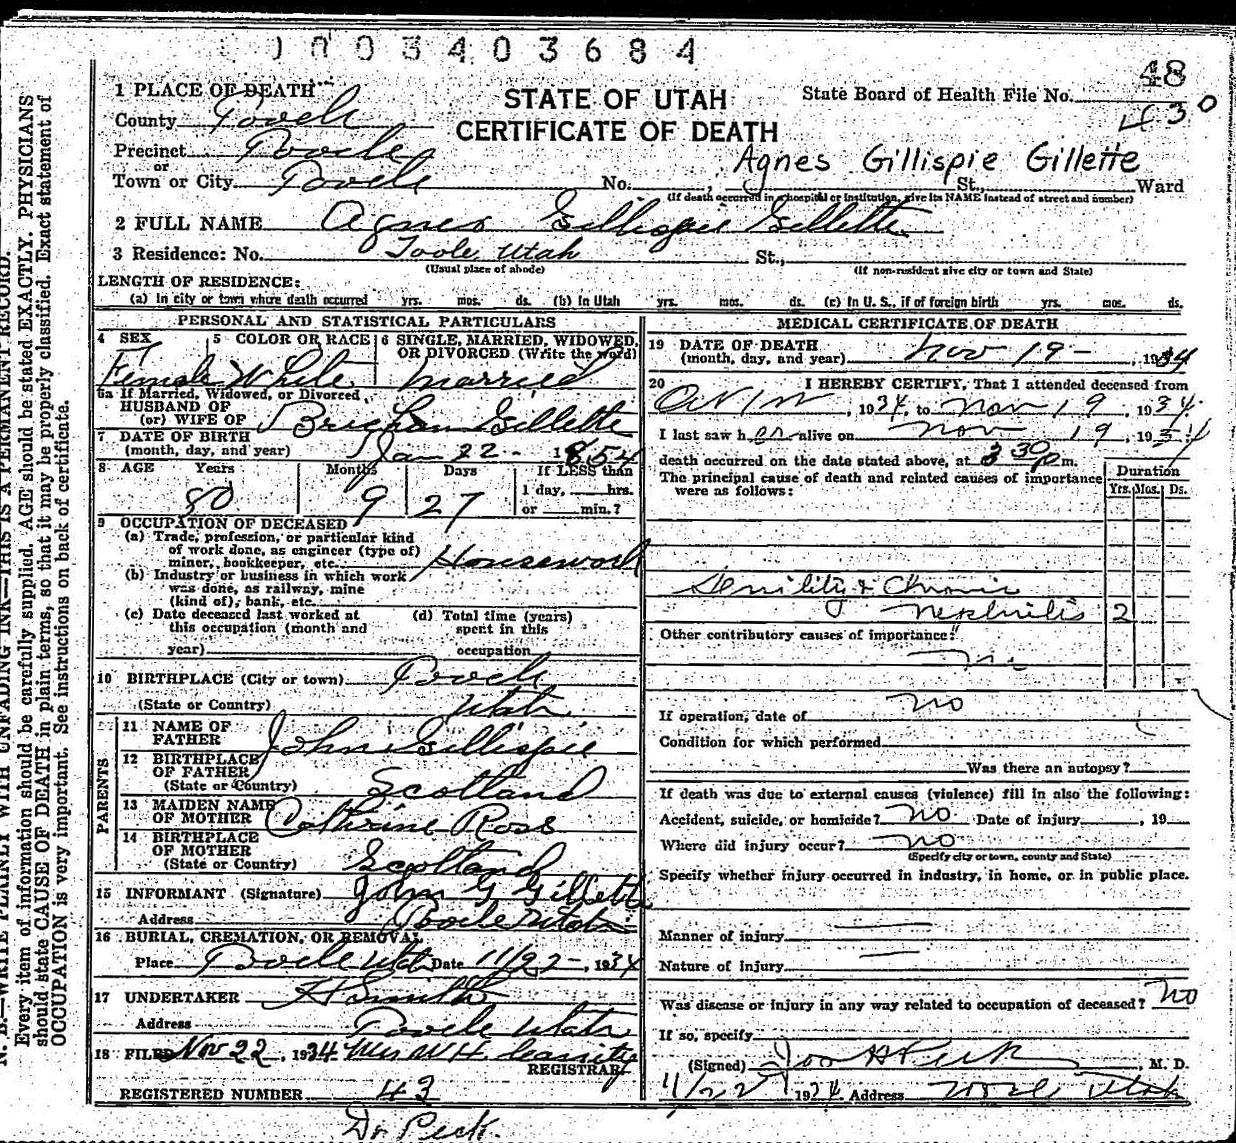 1003403684
48
430
STATE OF UTAH
CERTIFICATE OF DEATH
State Board of Health File No.
1 PLACE OF DEATH
County Tooele
Precinct Tooele
or
Town or City Tooele No. St., Ward
Agnes Gillispie Gillette
(If death occurred in a hospital or institution, give its NAME instead of street and number)
2 FULL NAME Agnes Gillispie Gillette
3 Residence: No. Toole, Utah St.,
(Usual place of abode) (If non-resident give city or town and State)
LENGTH OF RESIDENCE:
(a) In city or town where death occurred yrs. mos. ds. (b) In Utah yrs. mos. ds. (c) In U. S., if of foreign birth yrs. mos. ds.
PERSONAL AND STATISTICAL PARTICULARS
4 SEX 5 COLOR OR RACE 6 SINGLE, MARRIED, WIDOWED, OR DIVORCED (Write the word)
Female White Married
6a If Married, Widowed, or Divorced
HUSBAND OF
(or) WIFE OF Brigham Gillette
7 DATE OF BIRTH
(month, day, and year) Jan 22 - 1854
8 AGE Years Months Days If LESS than
80 9 27 1 day, hrs.
or min.?
9 OCCUPATION OF DECEASED
(a) Trade, profession, or particular kind
of work done, as engineer (type of)
miner, bookkeeper, etc. Housework
(b) Industry or business in which work
was done, as railway, mine
(kind of), bank, etc.
(c) Date deceased last worked at
this occupation (month and
year)
(d) Total time (years)
spent in this
occupation
10 BIRTHPLACE (City or town) Tooele
(State or Country) Utah
PARENTS
11 NAME OF
FATHER John Gillispie
12 BIRTHPLACE
OF FATHER
(State or Country) Scotland
13 MAIDEN NAME
OF MOTHER Cathrine Ross
14 BIRTHPLACE
OF MOTHER
(State or Country) Scotland
15 INFORMANT (Signature) John G Gillette
Address Tooele Utah
16 BURIAL, CREMATION, OR REMOVAL
Place Tooele Utah Date 11/22-, 1934
17 UNDERTAKER Smith
Address Tooele Utah
18 FILED Nov 22, 1934 Mrs W H Cassity
REGISTRAR
REGISTERED NUMBER 43
Dr. Peck.
MEDICAL CERTIFICATE OF DEATH
19 DATE OF DEATH
(month, day, and year) Nov 19 - , 1934
20 I HEREBY CERTIFY, That I attended deceased from
, 1934, to Nov 19, 1934.
I last saw her alive on Nov 19, 1934
death occurred on the date stated above, at 3 30 p m.
The principal cause of death and related causes of importance
were as follows:
Duration
Yrs. Mos. Ds.
Senility & Chronic
Nephritis 2
Other contributory causes of importance:
If operation, date of no
Condition for which performed
Was there an autopsy?
If death was due to external causes (violence) fill in also the following:
Accident, suicide, or homicide? no Date of injury , 19
Where did injury occur? no
(Specify city or town, county and State)
Specify whether injury occurred in industry, in home, or in public place.
Manner of injury
Nature of injury
Was disease or injury in any way related to occupation of deceased? no
If so, specify
(Signed) Jos H Peck , M. D.
11/22 1934 Address Tooele Utah
N. B.—WRITE PLAINLY WITH UNFADING INK—THIS IS A PERMANENT RECORD.
Every item of information should be carefully supplied. AGE should be stated EXACTLY. PHYSICIANS
should state CAUSE OF DEATH in plain terms, so that it may be properly classified. Exact statement of
OCCUPATION is very important. See instructions on back of certificate.